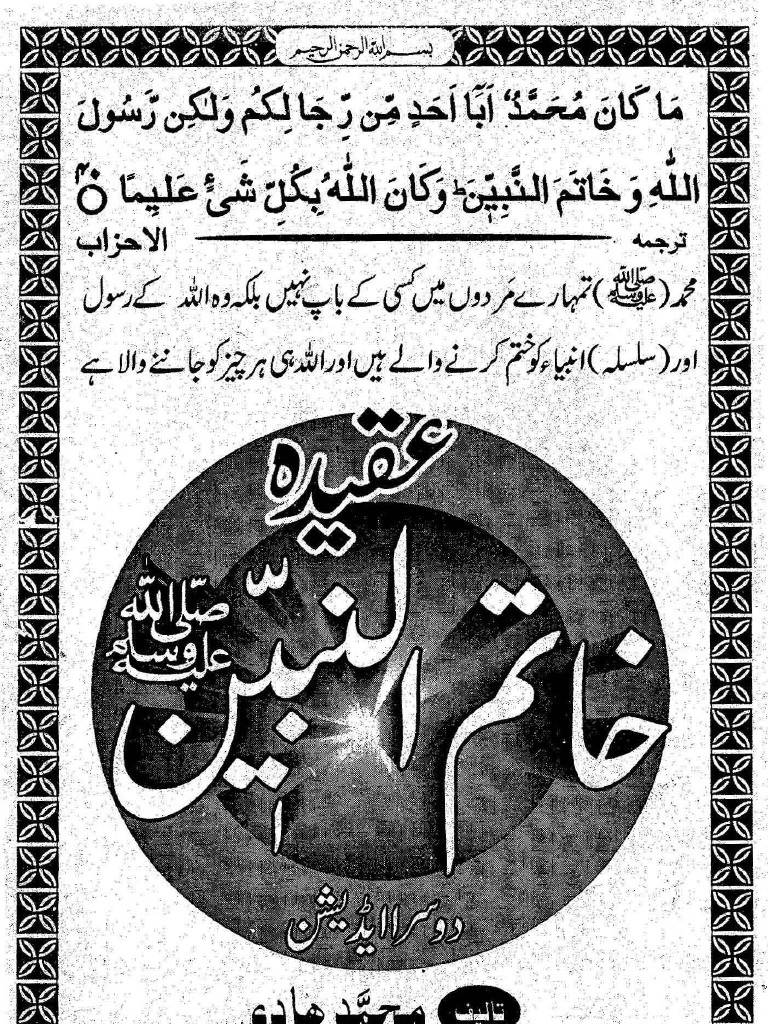 بسم الله الرحمن الرحیم
مَا كَانَ مُحَمَّدٌ اَبَآ اَحَدٍ مِّن رِّجَالِكُم وَلٰكِن رَّسُولَ
اللّٰهِ وَ خَاتَمَ النَّبِيّٖنَ ؕ وَكَانَ اللّٰهُ بِكُلِّ شَىْءٍ عَلِيمًا ۴۰
ترجمہ الاحزاب
محمد (ﷺ) تمہارے مَردوں میں کسی کے باپ نہیں بلکہ وہ اللہ کے رسول
اور (سلسلہ) انبیاء کو ختم کرنے والے ہیں اور اللہ ہی ہر چیز کو جاننے والا ہے
عقیدہ
خاتم النبیّٖن
صلّی اللّٰہ علیہ وسلم
دوسرا ایڈیشن
تالیف محمَّد ھادی